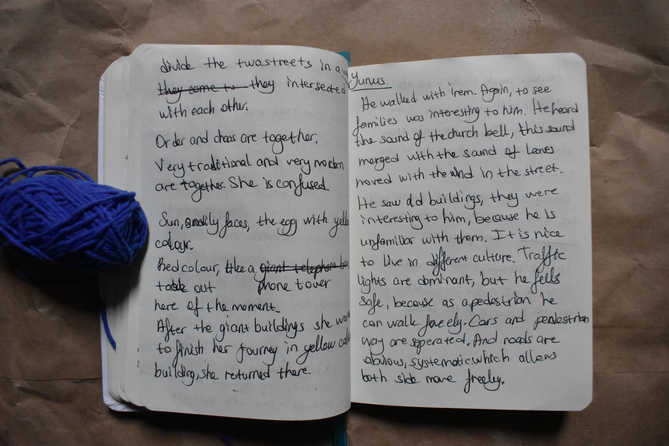 divide the two streets in a
they come to they intersected
with each other.
Order and chaos are together.
Very traditional and very modern
are together. She is confused.
Sun, smily faces, the egg with yellow
colour.
Red colour, like a giant telephone
took out phone tower
here of the moment.
After the giant buildings she
to finish her journey in yellow
building, she returned there.
Yunus
He walked with irem. Again, to see
families was interesting to him. He heard
the sound of the church bell, this sound
merged with the sound of leaves
moved with the wind in the street.
He saw old buildings, they were
interesting to him, because he is
unfamiliar with them. It is nice
to live in different culture. Traffic
lights are dominant, but he fells
safe, because as a pedestrian he
can walk freely. Cars and pedestrian
way are seperated. And roads are
obvious, systematic which allows
both side move freely.